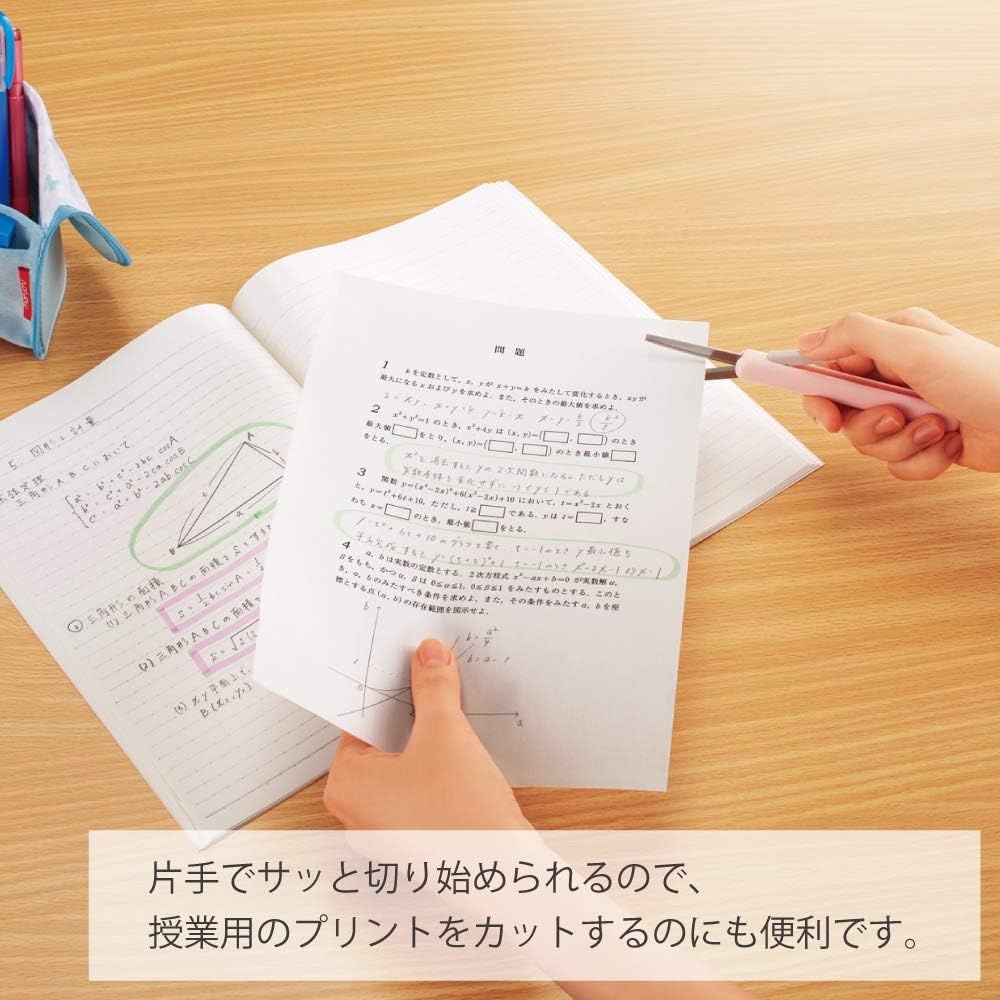 問題
1 kを定数として，x，yがx+y=kをみたして変化するとき，xyが
最大になるxおよびyを求めよ．また，そのときの最大値を求めよ．
2 x²+y²=1 のとき，x²+4yは(x, y)=(□, □)のとき
最大値□をとり，(x, y)=(□, □)のとき最小値□
をとる．
x²を消去するとyの2次関数になる。ただしyは
実数全体を変化せずに -1≦y≦1 である
3 関数 y=(x²−2x)²+6(x²−2x)+10 において，t=x²−2x とおく
と，y=t²+6t+10，ただし，t≧□である．yはt=□，すな
わち x=□のとき，最小値□をとる．
4 a，bは実数の定数とする．2次方程式 x²−ax+b=0 が実数解α，
βをもち，かつα，βは 0≦α≦1，0≦β≦1 をみたすものとする．このと
き，a，bのみたすべき条件を求めよ．また，その条件をみたすa，bを座
標とする点(a, b)の存在範囲を図示せよ．
b
1
0
a
5. 図形と計量
三角形ABCにおいて
a² = b² + c² - 2bc cosA
b² = c² + a² - 2ca cosB
c² = a² + b² - 2ab cosC
A
c
B
a
三角形の面積
(1) 三角形ABCの面積をSとすると
S = 1/2 bc sinA =
(2) 三角形ABCの面積
(3) xy平面上で
片手でサッと切り始められるので、
授業用のプリントをカットするのにも便利です。